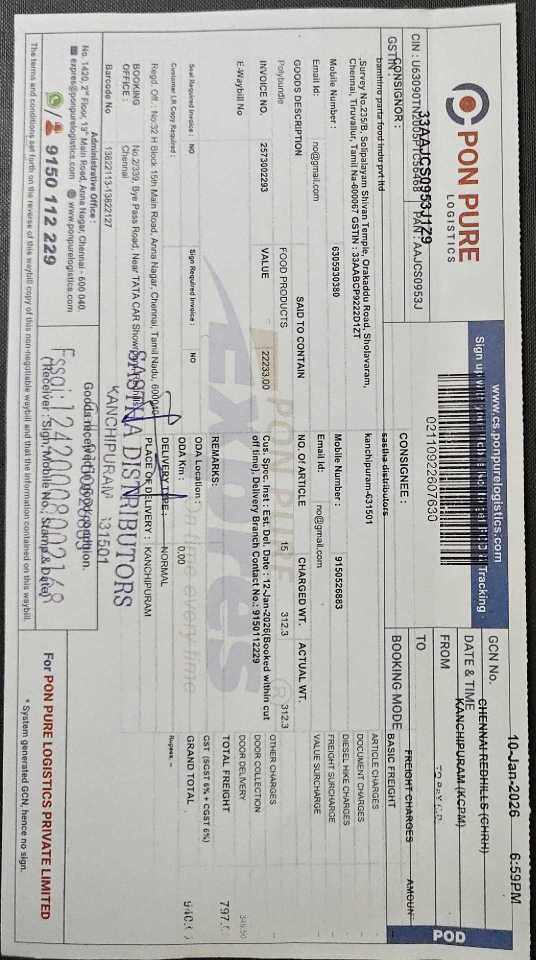 PON PURE
LOGISTICS
CIN : U63090TN2005PTC56468 PAN : AAJCS0953J
GSTIN : 33AAJCS0953J1Z9
www.cs.ponpurelogistics.com
Tracking
02110922607630
10-Jan-2026 6:59PM
GCN No.
DATE & TIME
CHENNAI REDHILLS (CHRH)
FROM
KANCHIPURAM (KCPM)
TO
BOOKING MODE
POD
CONSIGNOR :
bambino pasta food indu pvt ltd
,Survey No.235/B, Solipalayam Shivan Temple, Orakaddu Road, Sholavaram,
Chennai, Tiruvallur, Tamil Na-600067 GSTIN : 33AABCP9222D1ZT
Mobile Number : 6305930380
Email Id: no@gmail.com
CONSIGNEE :
sastha distributors
kanchipuram-631501
Mobile Number : 9150526883
Email Id: no@gmail.com
FREIGHT CHARGES AMOUN
BASIC FREIGHT
ARTICLE CHARGES
DOCUMENT CHARGES
DIESEL HIKE CHARGES
FREIGHT SURCHARGE
VALUE SURCHARGE
OTHER CHARGES
DOOR COLLECTION
DOOR DELIVERY
TOTAL FREIGHT 797.
GST (SGST 6% + CGST 6%)
GRAND TOTAL 940.
Rupees. –
GOODS DESCRIPTION SAID TO CONTAIN NO. OF ARTICLE CHARGED WT. ACTUAL WT.
Polybundle FOOD PRODUCTS 15 312.3 312.3
INVOICE NO. 2573002293 VALUE 22233.00
E-Waybill No
Cus. Spec. Inst : Est. Del. Date : 12-Jan-2026(Booked within cut
off time). Delivery Branch Contact No.: 9150112229
REMARKS:
Seal Required Invoice : NO Sign Required Invoice : NO
Customer LR Copy Required :
ODA Location :
ODA Km : 0.00
DELIVERY TYPE : NORMAL
PLACE OF DELIVERY : KANCHIPURAM
PON PURE
EXpress
time every time
Regd. Off. : No:32 H Block 15th Main Road, Anna Nagar, Chennai, Tamil Nadu, 600040
BOOKING
OFFICE :
No.2/339, Bye Pass Road, Near TATA CAR Show
Chennai
Barcode No 13822113-13822127
SASTHA DISTRIBUTORS
KANCHIPURAM 631501
Goods received in good condition.
Fssai:12420008002168
(Receiver : Sign, Mobile No., Stamp & Date)
Administrative Office :
No. 1420, 2nd Floor, 13th Main Road, Anna Nagar, Chennai - 600 040.
expres@ponpurelogistics.com www.ponpurelogistics.com
9150 112 229
For PON PURE LOGISTICS PRIVATE LIMITED
* System generated GCN, hence no sign.
The terms and conditions set forth on the reverse of this waybill copy of this non-negotiable waybill and that the information contained on this waybill.